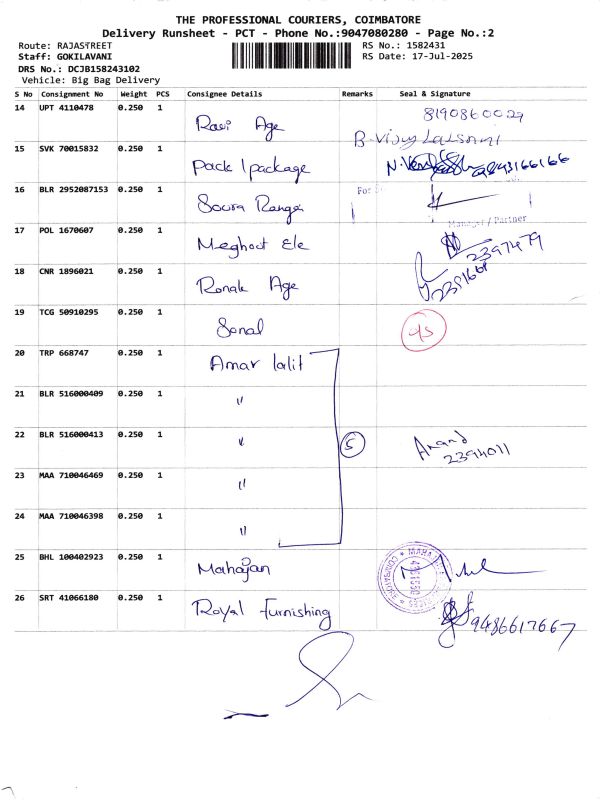 THE PROFESSIONAL COURIERS, COIMBATORE
Delivery Runsheet - PCT - Phone No.:9047080280 - Page No.:2
Route: RAJASTREET RS No.: 1582431
Staff: GOKILAVANI RS Date: 17-Jul-2025
DRS No.: DCJB158243102
Vehicle: Big Bag Delivery
S No Consignment No Weight PCS Consignee Details Remarks Seal & Signature
14 UPT 4110478 0.250 1 Ravi Age 8190860029
B. Vijay Lakshmi
15 SVK 70015832 0.250 1 Pack 1package
16 BLR 2952087153 0.250 1 Soura Range For
Manager / Partner
17 POL 1670607 0.250 1 Meghoot Ele 2397479
18 CNR 1896021 0.250 1 Ronak Age
19 TCG 50910295 0.250 1 Sonal o/s
20 TRP 668747 0.250 1 Amar lalit
21 BLR 516000409 0.250 1 "
22 BLR 516000413 0.250 1 " 5 Anand
2394011
23 MAA 710046469 0.250 1 "
24 MAA 710046398 0.250 1 "
25 BHL 100402923 0.250 1 Mahajan
26 SRT 41066180 0.250 1 Royal Furnishing 9486617667